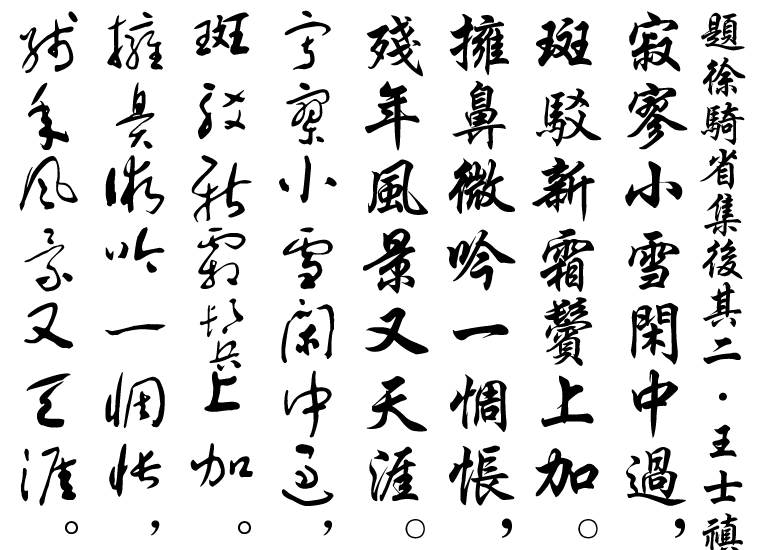 題徐騎省集後其二・王士禛
寂寥小雪閑中過，
斑駁新霜鬢上加。
擁鼻微吟一惆悵，
殘年風景又天涯。
寂寥小雪閑中過，
斑駁新霜鬢上加。
擁鼻微吟一惆悵，
殘年風景又天涯。